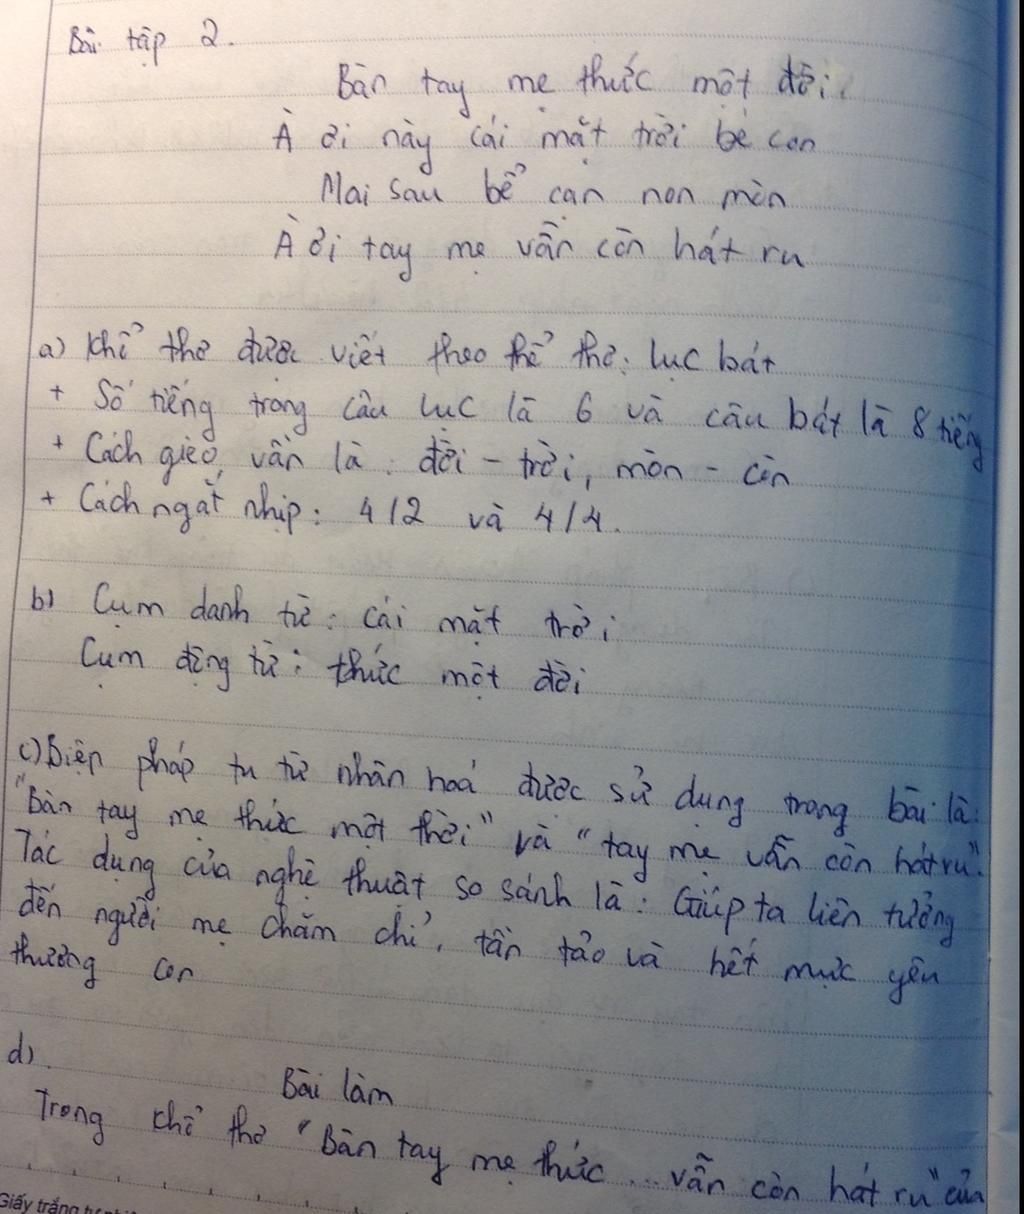 Bài tập 2.
Bàn tay mẹ thức một đời
À ơi này cái mặt trời bé con
Mai sau bể cạn non mòn
À ơi tay mẹ vẫn còn hát ru
a) Khổ thơ được viết theo thể thơ: lục bát
+ Số tiếng trong câu lục là 6 và câu bát là 8 tiếng
+ Cách gieo vần là: đời - trời, mòn - còn
+ Cách ngắt nhịp: 4/2 và 4/4.
b) Cụm danh từ: cái mặt trời
Cụm động từ: thức một đời
c) Biện pháp tu từ nhân hoá được sử dụng trong bài là:
"Bàn tay mẹ thức một thời" và "tay mẹ vẫn còn hát ru".
Tác dụng của nghệ thuật so sánh là: Giúp ta liên tưởng
đến người mẹ chăm chỉ, tần tảo và hết mực yêu
thương con
d)
Bài làm
Trong khổ thơ "Bàn tay mẹ thức... vẫn còn hát ru" của
Giấy trắng